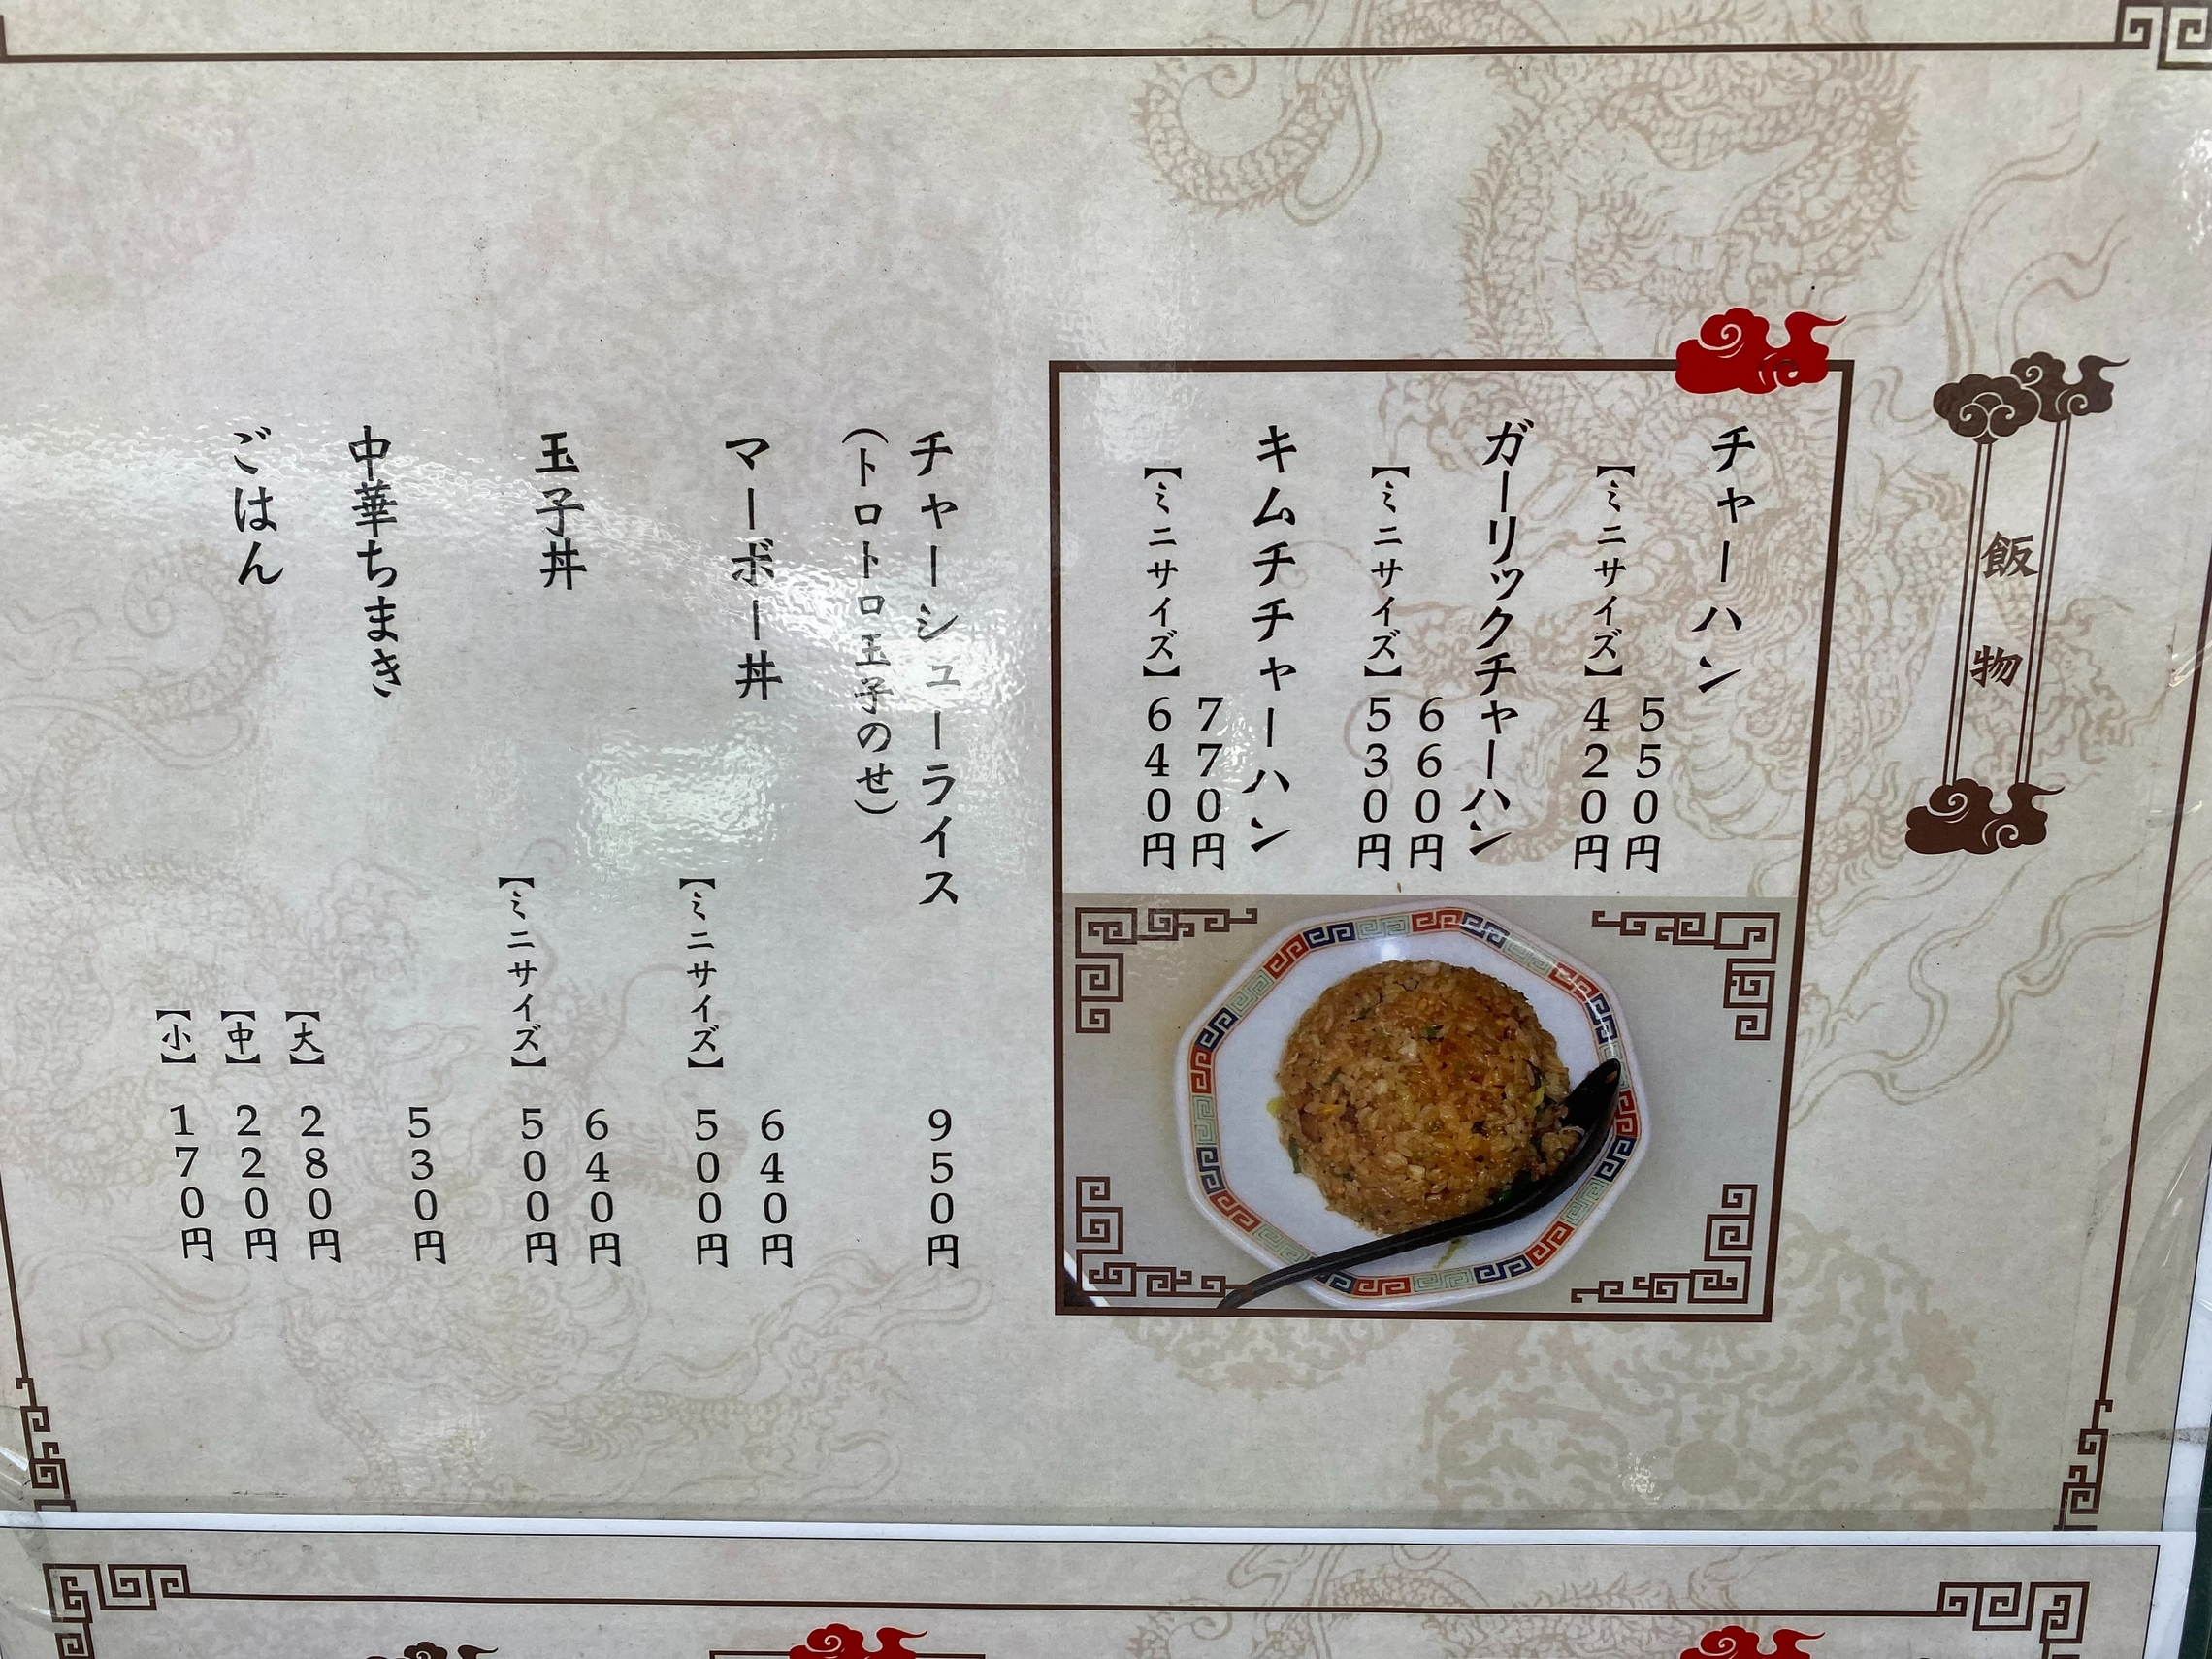 飯物
チャーハン
550円
【ミニサイズ】420円
ガーリックチャーハン
660円
【ミニサイズ】530円
キムチチャーハン
770円
【ミニサイズ】640円
チャーシューライス 950円
(トロトロ玉子のせ)
マーボー丼 640円
【ミニサイズ】 500円
玉子丼 640円
【ミニサイズ】 500円
中華ちまき 530円
ごはん 【大】 280円
【中】 220円
【小】 170円